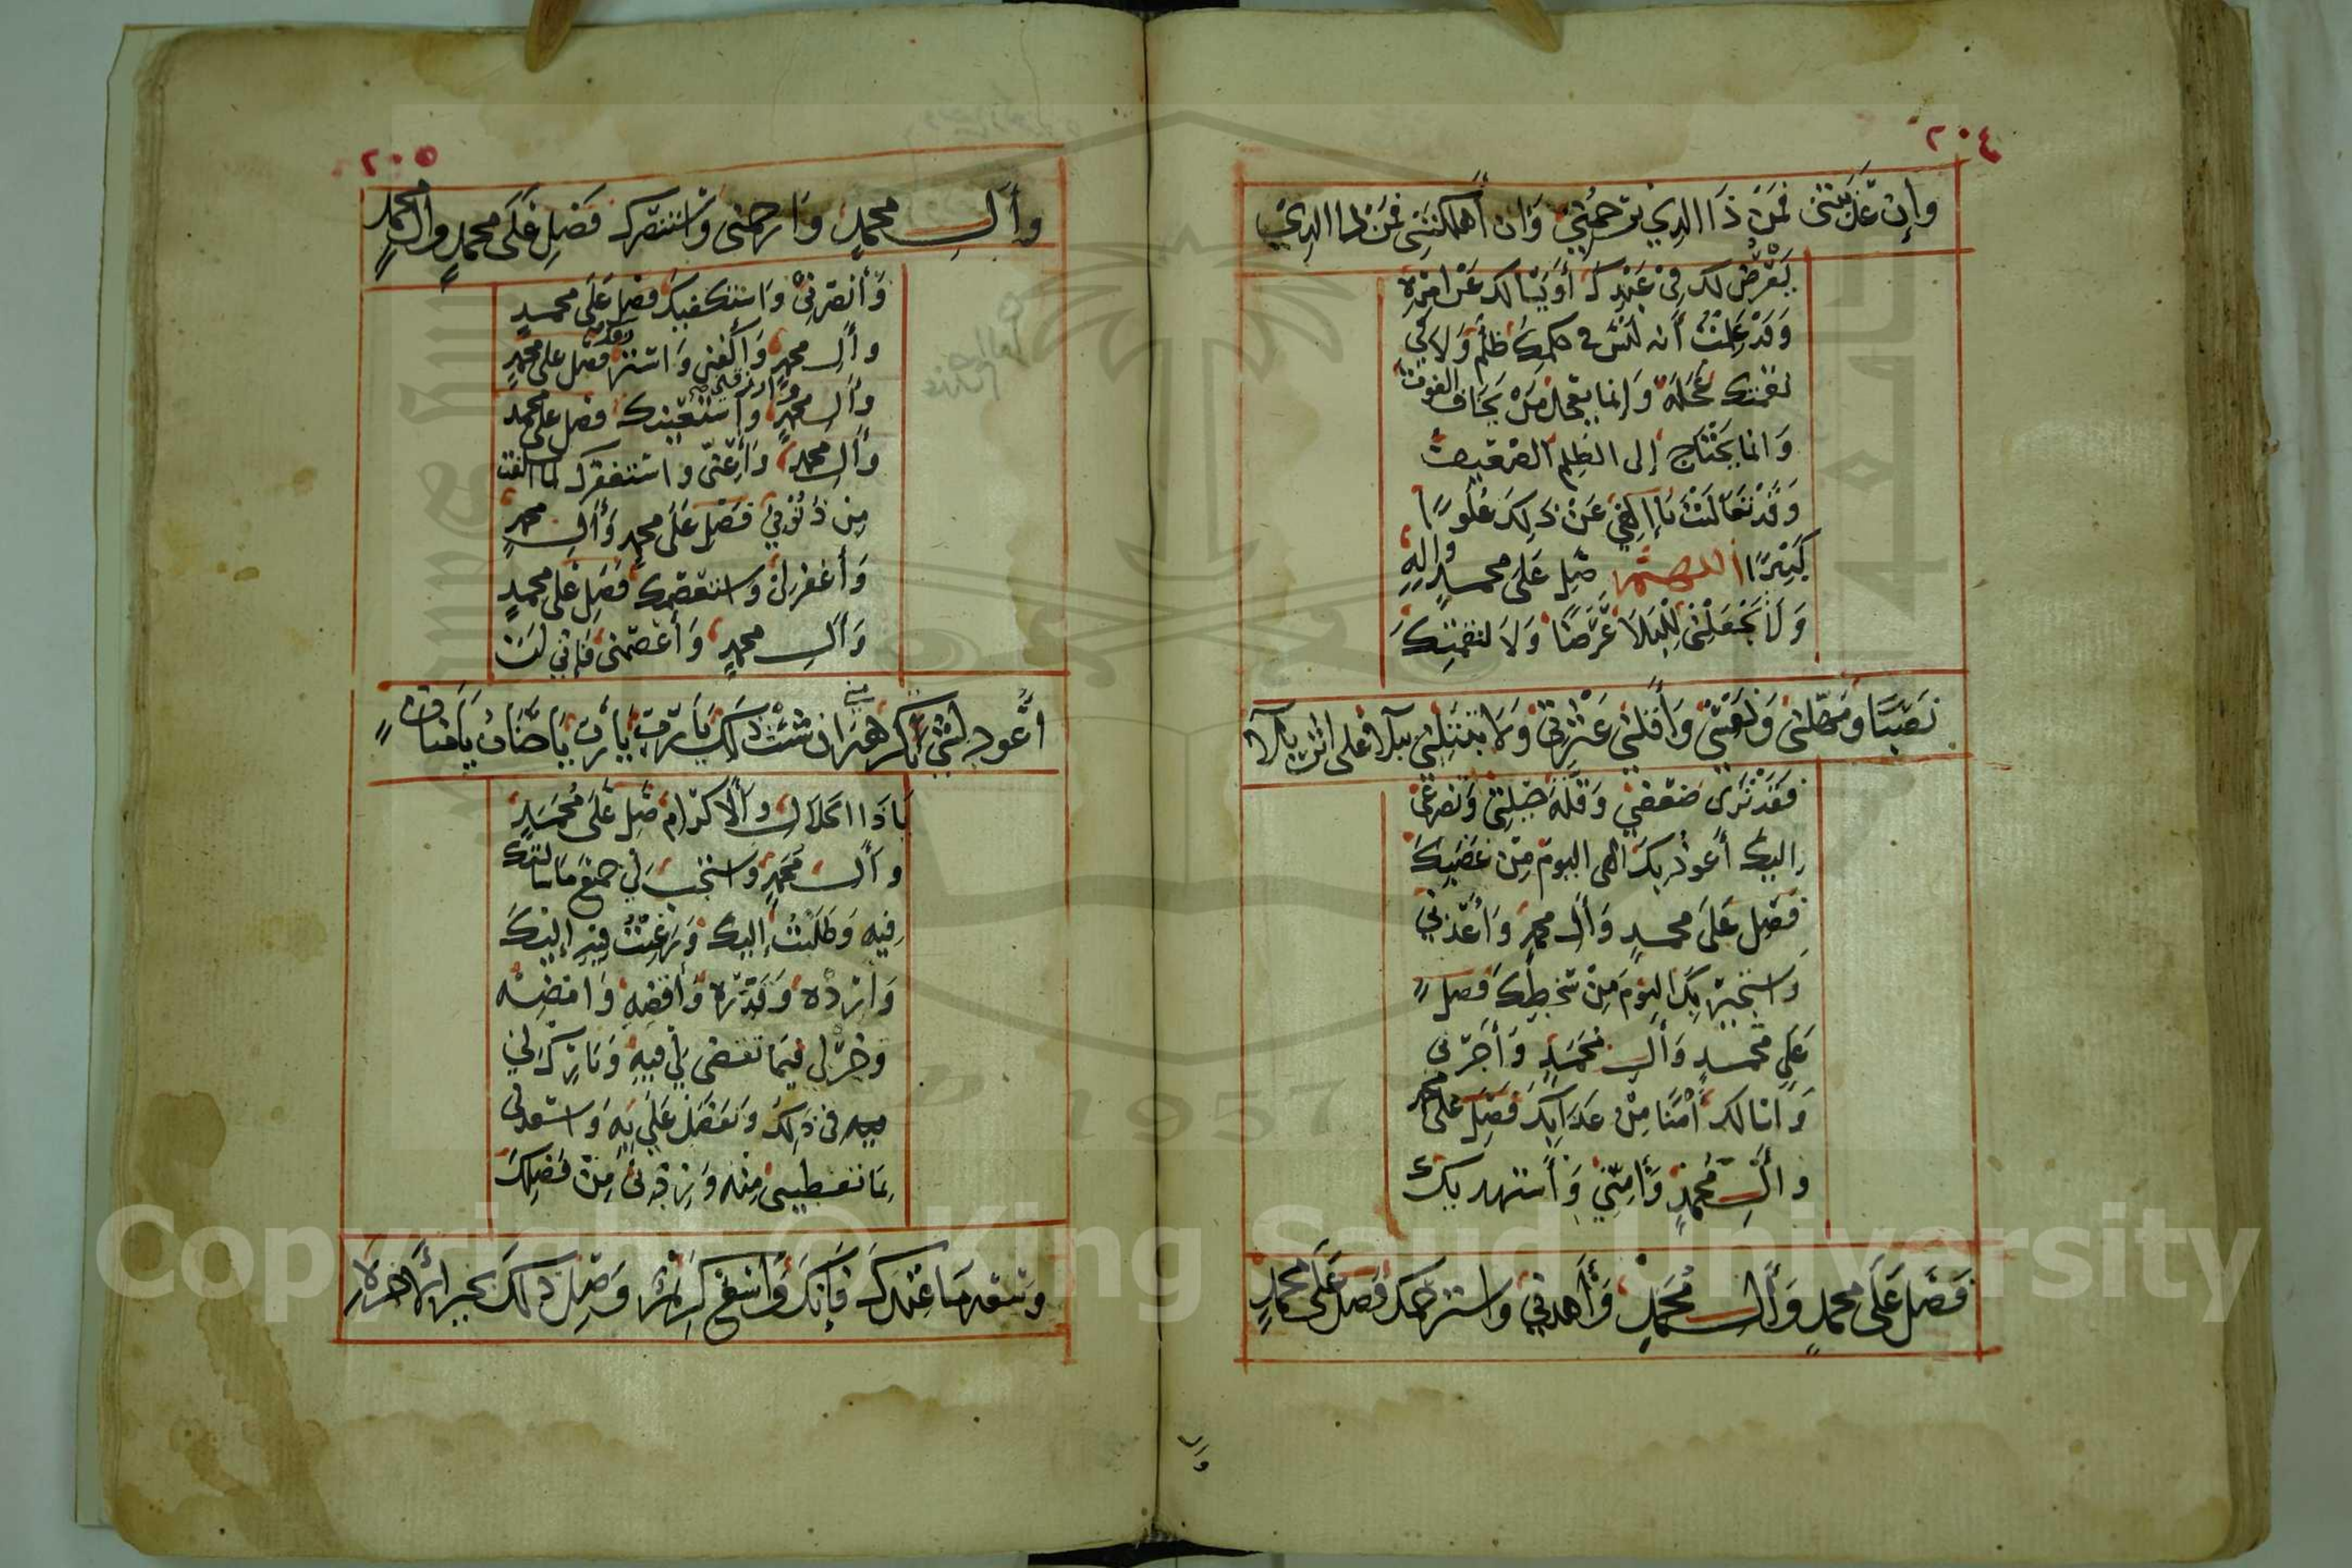 ٢٠٤
وإن عذبتني فمن ذا الذي يرحمني وان أهلكتني فمن ذا الذي
يعرض لك في عبدك أو يسالك عن امره
وقد علمت أنه ليس في حكمك ظلم ولا في
نقمتك عجلة وانما يعجل من يخاف الفوت
وانما يحتاج إلى الظلم الضعيف
وقد تعاليت يا إلهي عن ذلك علوا
كبيرا اللهم صل على محمد واله
ولا تجعلني للبلا غرضا ولا لنقمتك
نصبا ومهلني ونفسني وأقلني عثرتي ولا تبتلني ببلآ على اثر بلآ
فقد ترى ضعفي وقلة حيلتي وتضرعي
اليك أعوذ بك اللهم اليوم من غضبك
فصل على محمد وآل محمد وأعذني
واستجير بك اليوم من سخطك فصل
على محمد وآل محمد وأجرني
واسالك أمنا من عذابك فصل على محمد
وآل محمد وآمني وأستهديك
فصل على محمد وآل محمد وأهدني واسترحمك فصل على محمد
٢٠٥
وآل محمد وارحمني واستنصرك فصل على محمد وآل محمد
وأنصرني واستكفيك فصل على محمد
وآل محمد وأكفني واسترزقك فصل على محمد
وآل محمد وارزقني وأستعينك فصل على محمد
وآل محمد وأعني واستغفرك لما سلف
من ذنوبي فصل على محمد وآل محمد
وأغفر لي واستعصمك فصل على محمد
وآل محمد وأعصمني فإني لن
أعود لشيء كرهته مني ان شئت ذلك يارب يارب ياحنان يامنان
ياذا الجلال والاكرام صل على محمد
وآل محمد واستجب لي جميع ما سالتك
فيه وطلبت إليك ورغبت فيه إليك
وأرده وقدره وأقضه وامضه
وخر لي فيما تقضي لي فيه وبارك لي
فيه في ذلك وتفضل علي به واسعدني
بما تعطيني منه وزدني من فضلك
وسعة ما عندك فإنك واسع كريم وصل ذلك بخير الآخرة